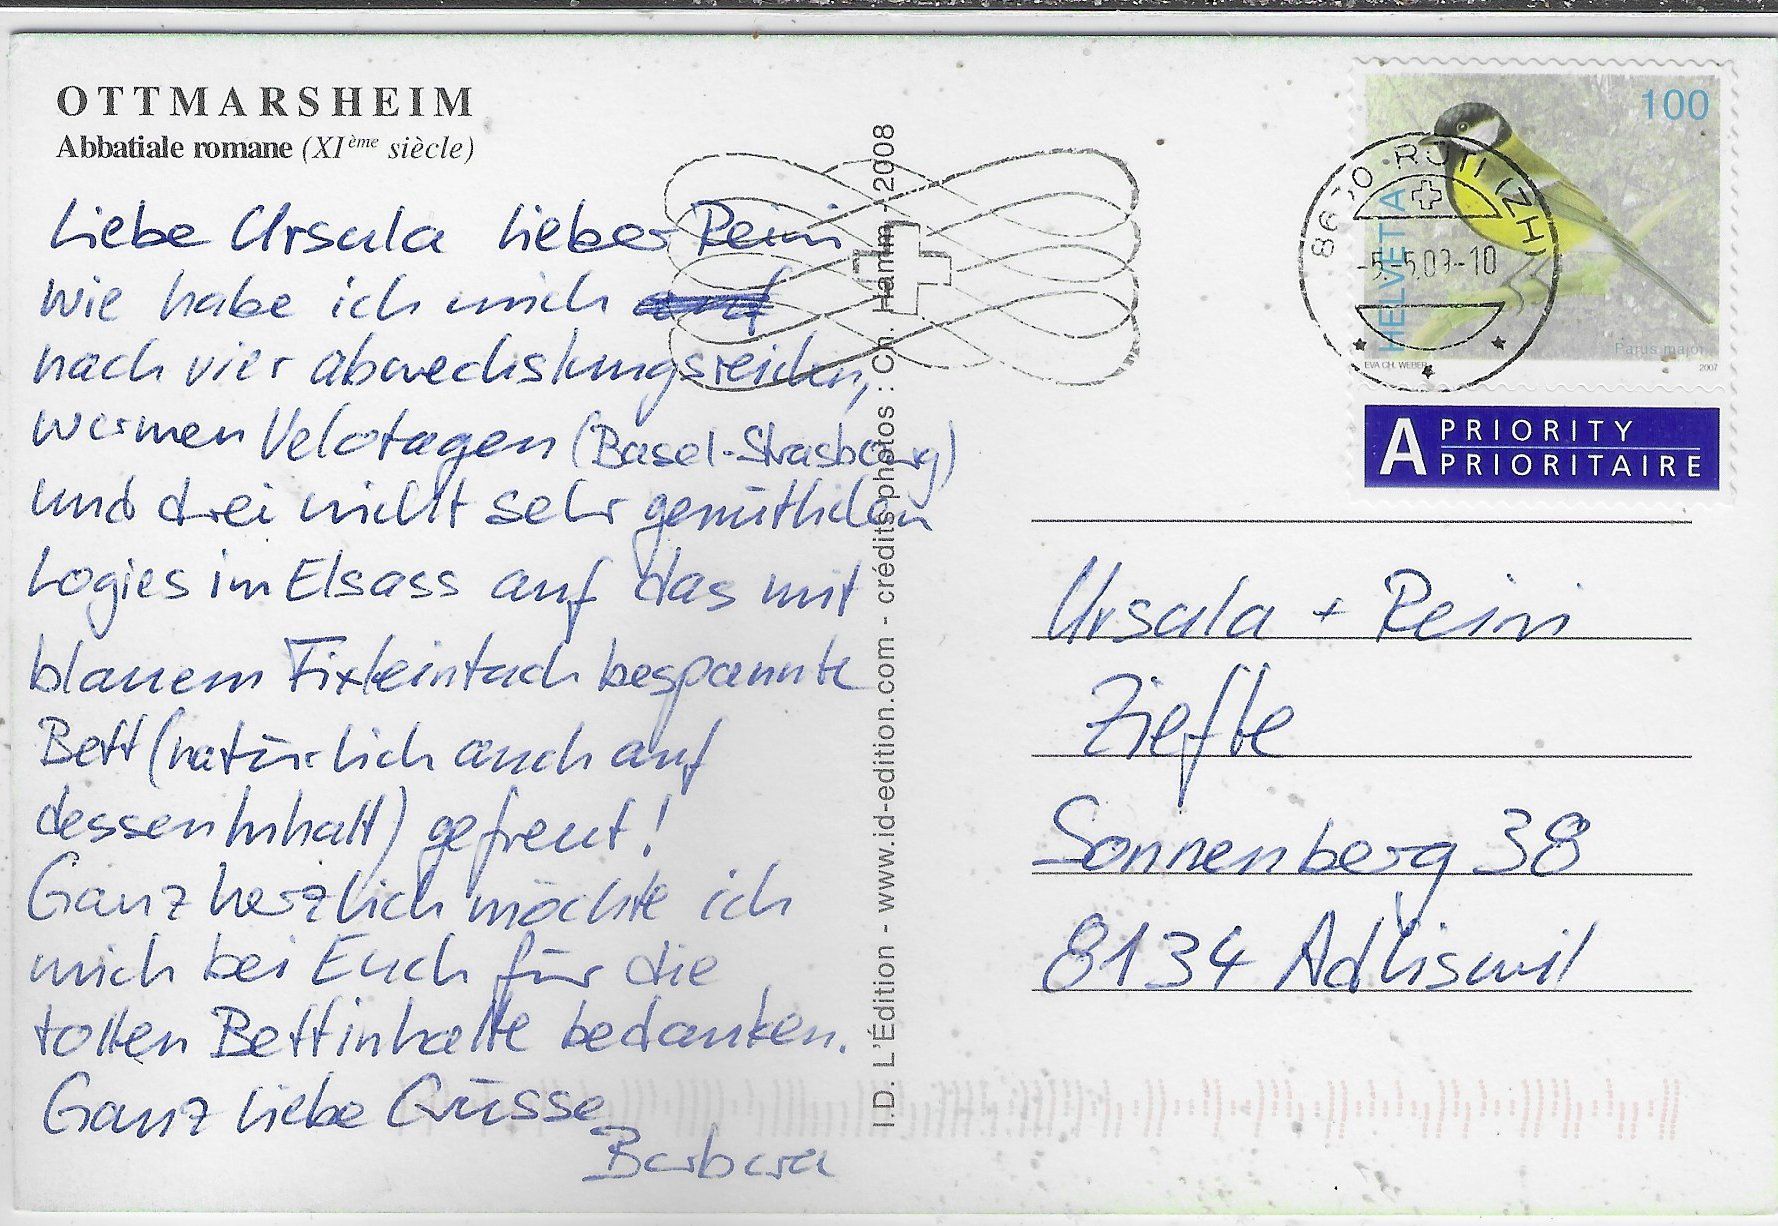 OTTMARSHEIM
Abbatiale romane (XIème siècle)
Liebe Ursula Lieber Reini
wie habe ich mich auf
nach vier abwechslungsreichen,
warmen Velotagen (Basel-Strasbourg)
und drei nicht sehr gemütlichen
Logies im Elsass auf das mit
blauem Fixleintuch bespannte
Bett (natürlich auch auf
dessen Inhalt) gefreut!
Ganz herzlich möchte ich
mich bei Euch für die
tollen Bettinhalte bedanken.
Ganz liebe Grüsse
Barbara
I.D. L'Édition - www.id-edition.com - crédits photos : Ch. Hamm - 2008
100
HELVETIA
Parus major
EVA CH. WEBER
2007
8630 RÜTI (ZH)
-5.-5.09-10
A PRIORITY
PRIORITAIRE
Ursula + Reini
Ziefle
Sonnenberg 38
8134 Adliswil